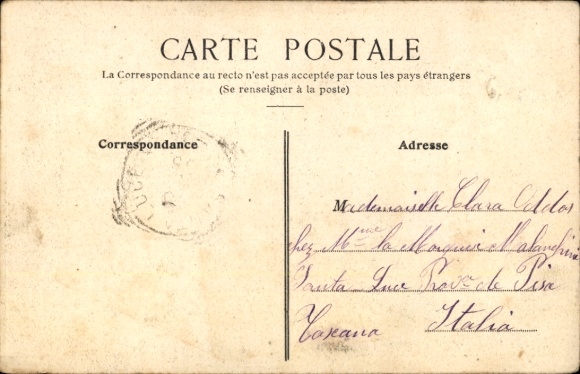 CARTE POSTALE
La Correspondance au recto n'est pas acceptée par tous les pays étrangers
(Se renseigner à la poste)
Correspondance
Adresse
Mademoiselle Clara
chez Mme la
Prov.ca de Pisa
Toscana Italia